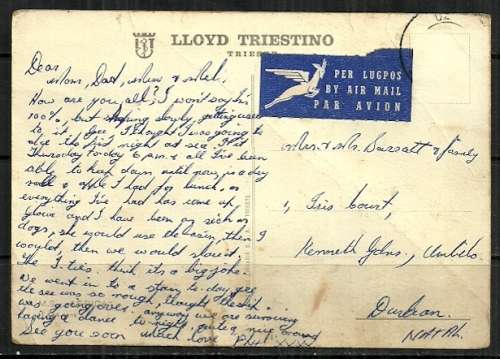 LLOYD TRIESTINO
TRIESTE
PER LUGPOS
BY AIR MAIL
PAR AVION
Dear
Mom, Dad, &
How are you all? I won't say I'm
100%, but slowly getting used
to it. Gee, I thought I was going to
die the first night at sea. Left
Thursday 6 p.m. & all I've been
able to keep down, until now, is a dry
roll & apple I had for lunch, as
everything I've had has come up.
and I have been as sick as
dogs, she would use the basin, then I
would, then we would
the think it's a big joke.
We went in to a storm to-day, gee
the sea was so rough, thought the ship
was going over. anyway we are surviving
having a dance to-night, quite a nice crowd
See you soon much love
Mr. & Mrs. Bassatt & family
1, Iris Court,
Kenneth Gdns., Umbilo
Durban.
NATAL.